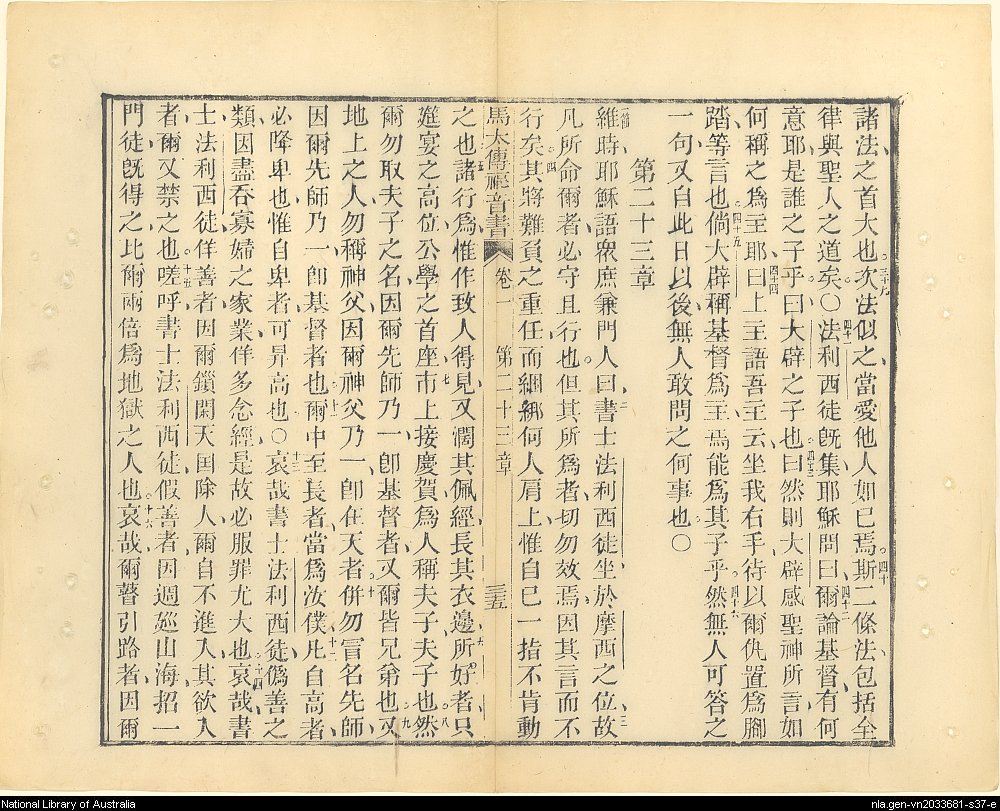 諸法之首大也三十九次法似之當愛他人如己焉四十斯二條法包括全
律與聖人之道矣○四十一法利西徒旣集耶穌問曰四十二爾論基督有何
意耶是誰之子乎曰大辟之子也四十三曰然則大辟感聖神所言如
何稱之爲主耶四十四曰上主語吾主云坐我右手待以爾仇置爲腳
踏等言也四十五倘大辟稱基督爲主焉能爲其子乎四十六然無人可答之
一句又自此日以後無人敢問之何事也○
第二十三章
一節維時耶穌語衆庶兼門人二曰書士法利西徒坐於摩西之位三故
凡所命爾者必守且行也但其所爲者切勿效焉因其言而不
行矣四其將難負之重任而綑綁何人肩上惟自己一指不肯動
馬太傳福音書 卷一 第二十三章 三五
之也五諸行爲惟作致人得見又濶其佩經長其衣邊六所好者只
筵宴之高位公學之首座七市上接慶賀爲人稱夫子夫子也八然
爾勿取夫子之名因爾先師乃一卽基督者又爾皆兄弟也九又
地上之人勿稱神父因爾神父乃一卽在天者十併勿冒名先師
因爾先師乃一卽基督者也十一爾中至長者當爲汝僕十二凡自高者
必降卑也惟自卑者可昇高也○十三哀哉書士法利西徒僞善之
類因盡呑寡婦之家業佯多念經是故必服罪尤大也十四哀哉書
士法利西徒佯善者因爾鎖閑天国除人爾自不進入其欲入
者爾又禁之也十五嗟呼書士法利西徒假善者因週廵山海招一
門徒旣得之比爾兩倍爲地獄之人也十六哀哉爾瞽引路者因爾
National Library of Australia
nla.gen-vn2033681-s37-e